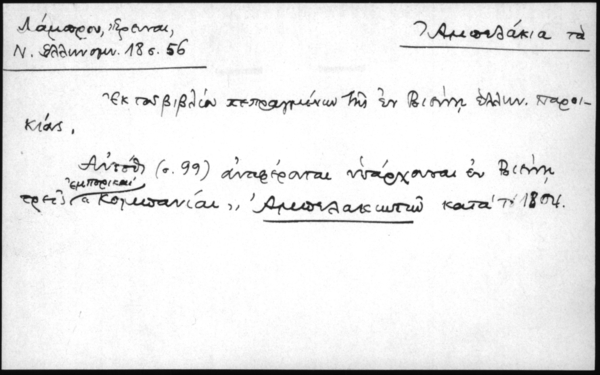 Λάμπρου, Ἔρευναι,
Ν. Ἑλληνομν. 18 σ. 56
Ἀμπελάκια τὰ
Ἐκ τοῦ βιβλίου πεπραγμένων τῆς ἐν Βιέννῃ ἑλλην. παροι-
κίας.
Αὐτόθι (σ. 99) ἀναφέρονται ὑπάρχουσαι ἐν Βιέννῃ
ἐμπορικαὶ
τρεῖς "Κομπανίαι" Ἀμπελακιωτῶν κατὰ τὸ 1804.